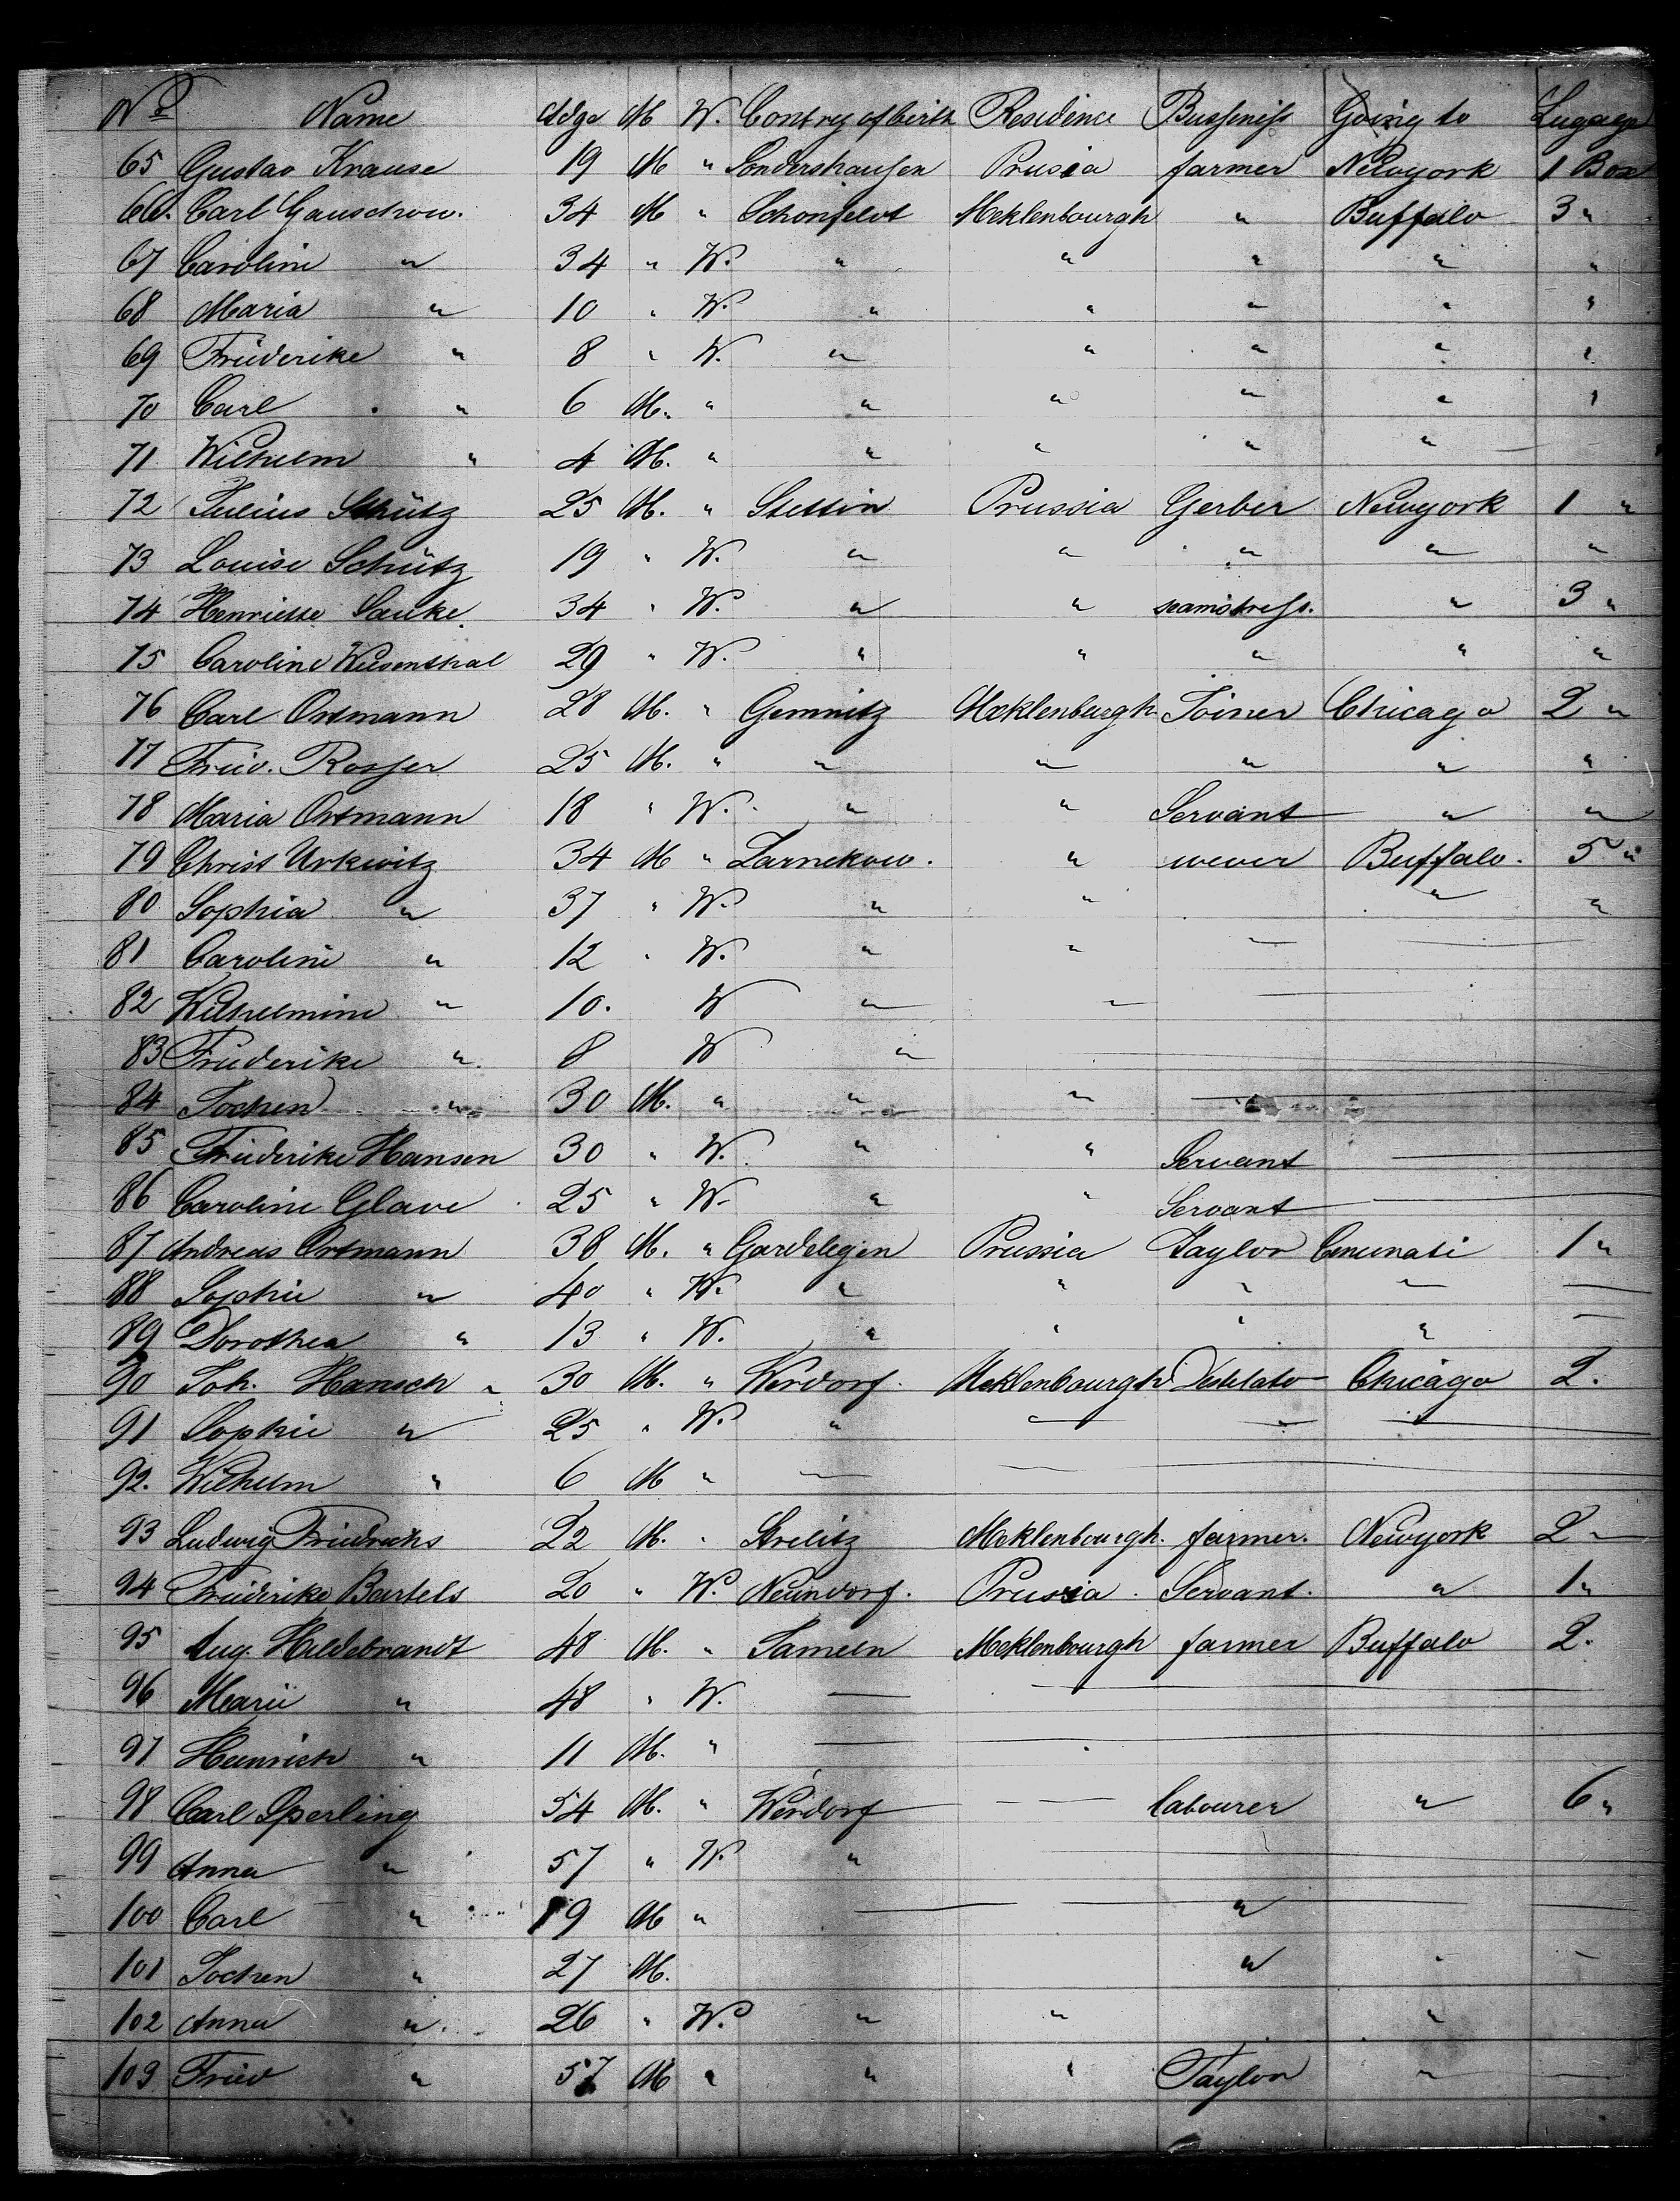 No Name Adge M W. Contry of birth Residence Bussiness Going to Lugage
65 Gustav Krause 19 M " Sondershausen Prusia farmer Newyork 1 Box
66. Carl Ganschow. 34 M " Schonfeldt Meklenbourgh " Buffalo 3 "
67 Caroline " 34 " W. " " " " "
68 Maria " 10 " W. " " " " "
69 Friederike " 8 " W. " " " " "
70 Carl " 6 M. " " " " " "
71 Wilhelm " 4 M. " " " " "
72 Julius Schütz 25 M. " Stettin Prussia Gerber Newyork 1 "
73 Louise Schütz 19 " W. " " " " "
74 Henriette Sauke. 34 " W. " " seamstress. " 3 "
75 Caroline Wiesenthal 29 " W. " " " " "
76 Carl Ortmann 28 M. " Gemnitz Meklenburgh Joiner Chicago 2 "
77 Fried. Rosser 25 M. " " " " " "
78 Maria Ortmann 18 " W. " " Servant " "
79 Christ Urkwitz 34 M " Larnekow. " wever Buffalo. 5 "
80 Sophia " 37 " W. " " " "
81 Caroline " 12 " W. " "
82 Wilhelmine " 10. W " "
83 Friederike " 8 W "
84 Jochen " 30 M. " " "
85 Friederike Hansen 30 " W. " " Servant
86 Caroline Glave 25 " W. " " Servant
87 Andreas Ortmann 38 M. " Gardelegen Prussia Taylor Cinunati 1 "
88 Sophie " 40 " W. " " " "
89 Dorothea " 13 " W. " " " "
90 Joh. Hansch " 30 M. " Werdorf. Meklenbourgh Chicago 2.
91 Sophie " 25 " W. " " " "
92. Wilhelm " 6 M "
93 Ludwig Friedrichs 22 M. " Strelitz Meklenbourgh. farmer. Newyork 2 "
94 Friederike Bartels 20 " W. Neundorf. Prussia. Servant. " 1 "
95 Aug. Hildebrandt 48 M. " Sameln Meklenbourgh farmer Buffalo 2.
96 Marie " 48 " W.
97 Heinrich " 11 M. "
98 Carl Sperling 54 M. " Werdorf labourer " 6 "
99 Anna " 57 " W. "
100 Carl " 19 M " "
101 Jochen " 27 M. " "
102 Anna " 26 " W. " " "
103 Fried " 57 M " " " Taylor "